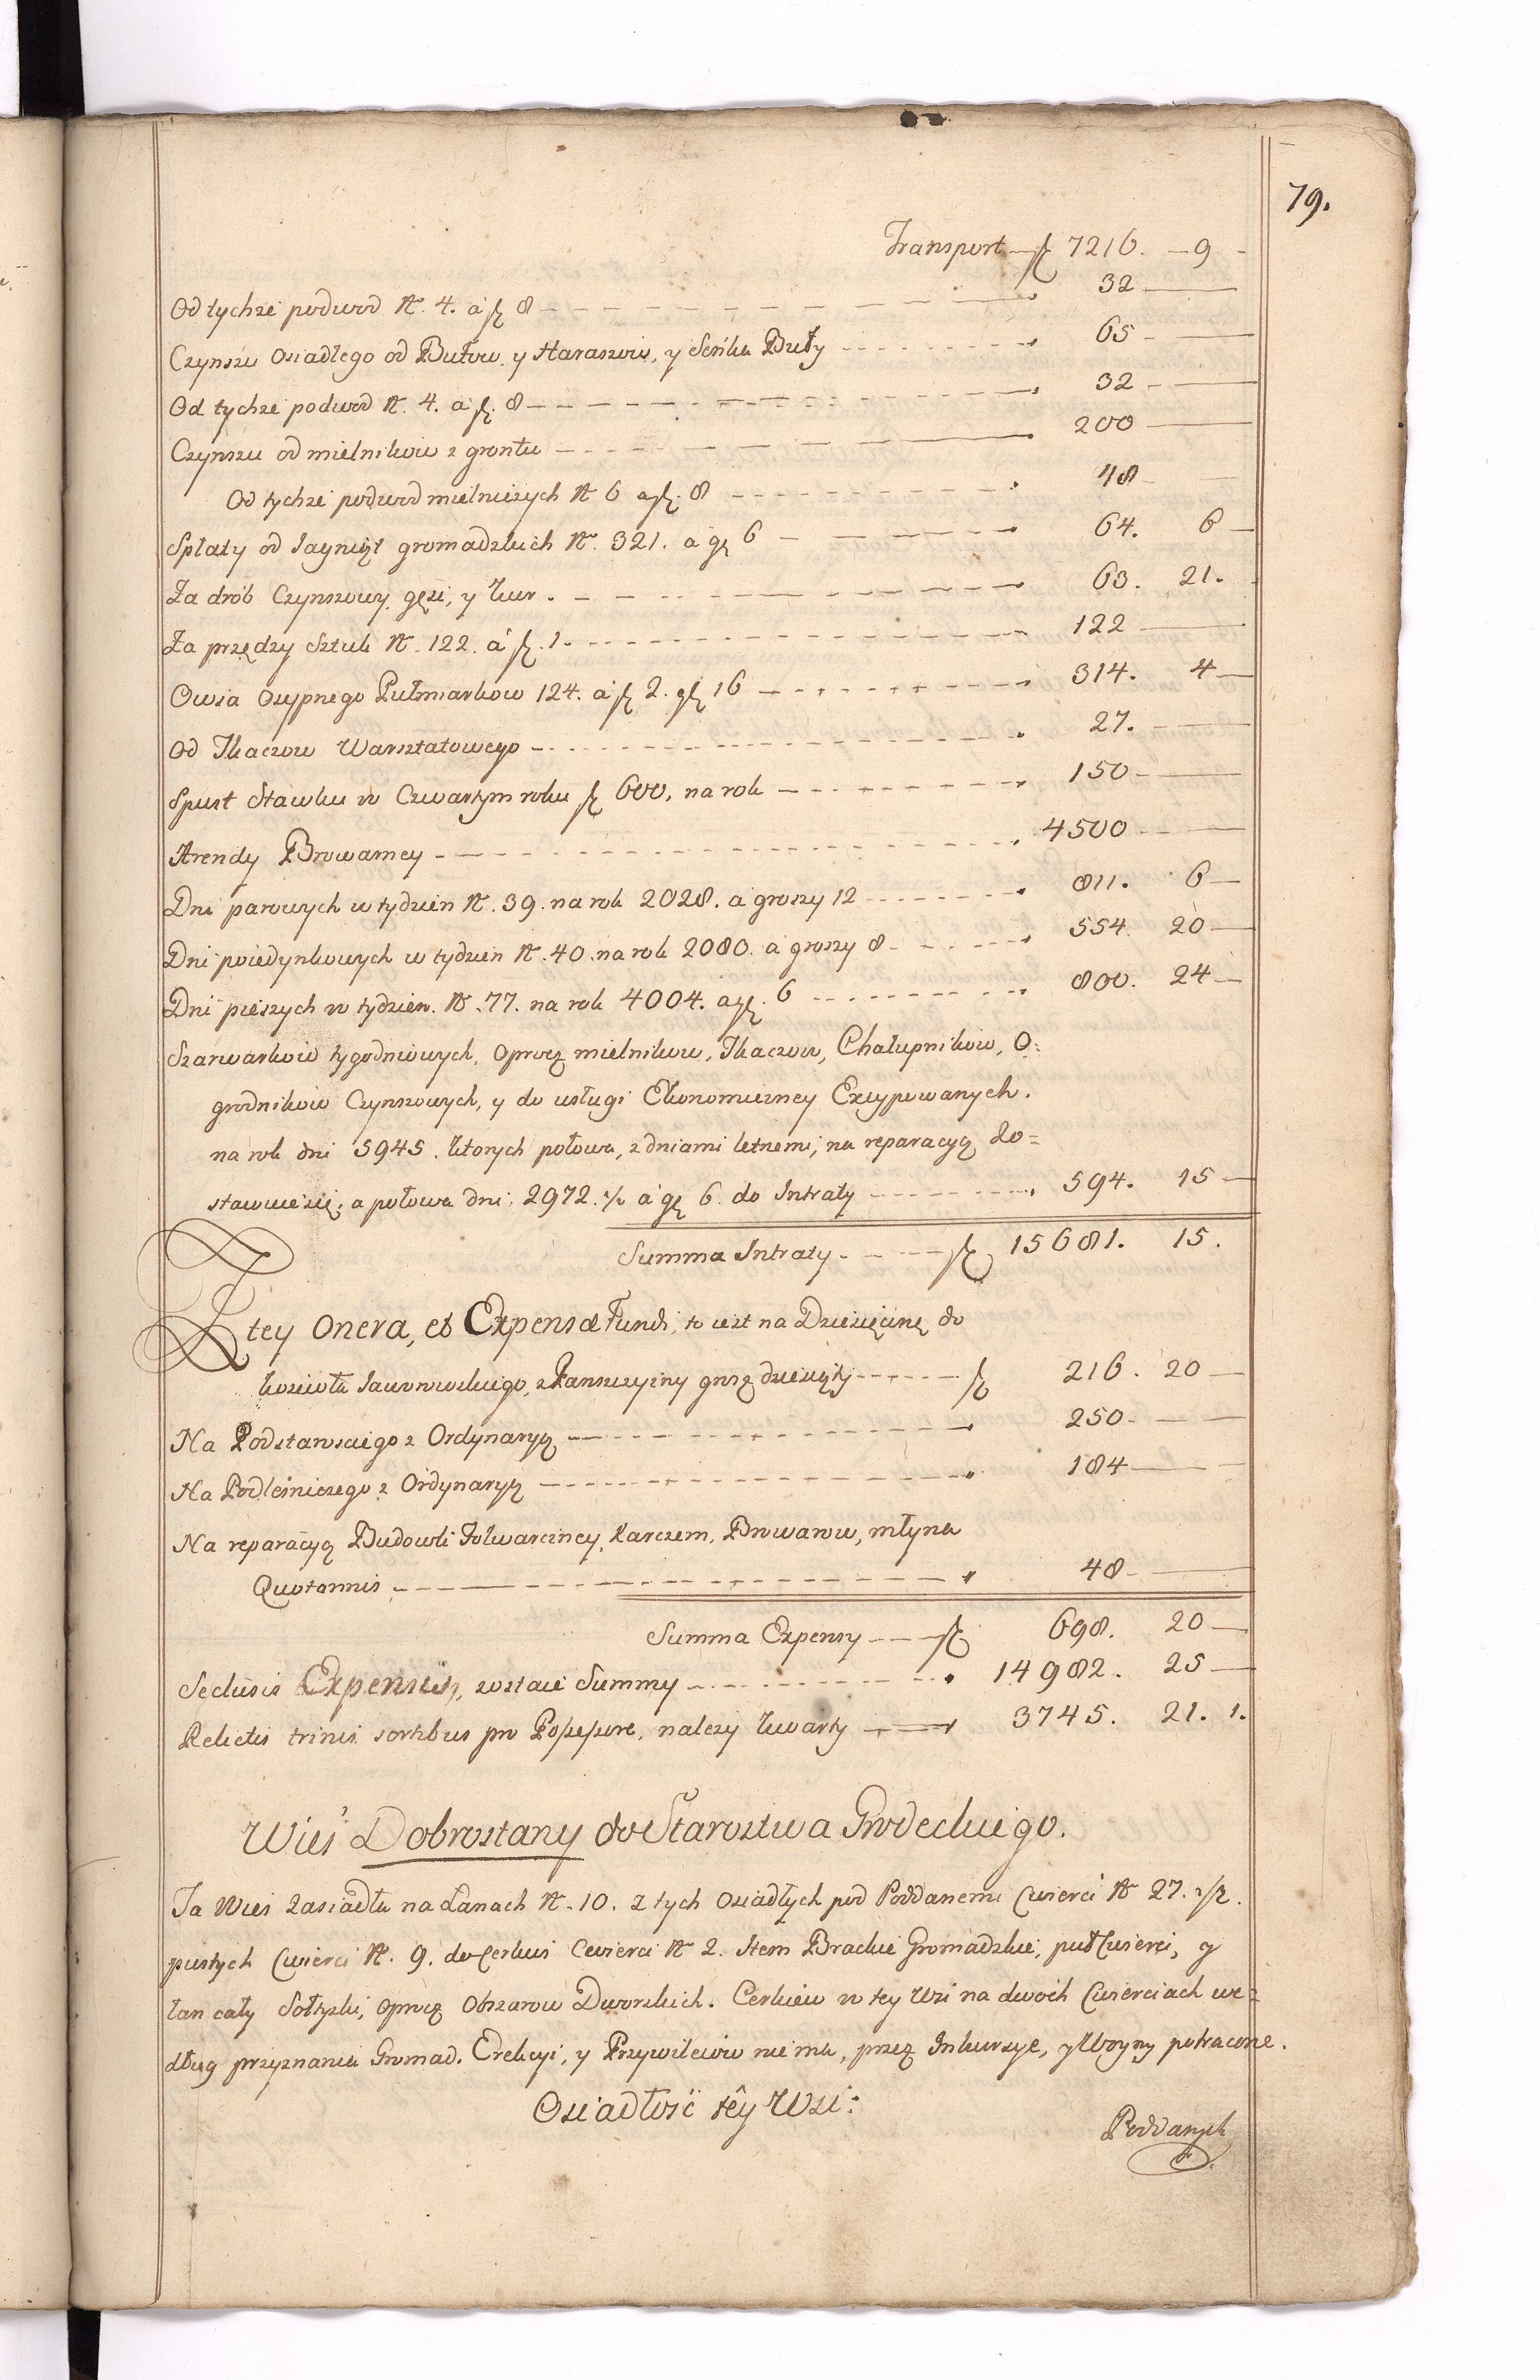 79.
Transport — fl 7216. — 9 -
Od tychże podwod N. 4. à fl 8 — 32 —
Czynszu osiadłego od Bułow, y Harasow, y Seńka Buły — 65 —
Od tychże podwod N. 4. à fl. 8 — 32 —
Czynszu od mielnikow z gruntu — 200 —
Od tychże podwod mielniczych N 6 a fl. 8 — 48 —
Spłaty od Jagniąt gromadzkich N. 321. a gr 6 — 64. 6 —
Za drób Czynszowy, gęsi, y kur. — 63. 21.
Za przędzy Sztuk N. 122. á fl. 1. — 122 —
Owsa osypnego Pułmiarkow 124. á fl 2. gr 16 — 314. 4 —
Od Tkaczow Warsztatowego — 27. —
Spust Stawku w Czwartym roku fl 600, na rok — 150 —
Arendy Browarney — 4500 —
Dni parowych w tydzien N. 39. na rok 2028. á groszy 12 — 811. 6 —
Dni poiedynkowych w tydzien N. 40. na rok 2080. á groszy 8 — 554. 20 —
Dni pieszych w tydzien. N. 77. na rok 4004. a gr. 6 — 800. 24 —
Szarwarkow tygodniowych, oprocz mielnikow, Tkaczow, Chałupnikow, O=
grodnikow Czynszowych, y do usługi Ekonomiczney Excypowanych.
na rok dni 5945. ktorych połowa, z dniami letnemi, na reparacyą zo=
stawuie się, a połowa dni: 2972. ½ á gr 6. do Intraty — 594. 15 —
Summa Intraty — fl 15681. 15.
Z tey Onera, et Expensæ Fundi, to iest na Dziesięcinę do
kościoła Jaworowskiego, z Panszczyzny grosz dziesiąty — fl 216. 20 —
Na Podstarosciego z Ordynaryą — 250 —
Na Podleśniczego z Ordynaryą — 184 —
Na reparacyą Budowli Folwarczney, Karczem, Browarow, młyna
Quotannis — 48 —
Summa Expensy — fl 698. 20 —
Seclusis Expensis, zostaie Summy — 14982. 25 —
Relictis trinis sortibus pro Possessore, nalezy kwarty — 3745. 21. 1.
Wieś Dobrostany do Starostwa Grodeckiego.
Ta Wieś zasiadła na Łanach N. 10. z tych osiadłych pod Poddanemi Cwierci N 27. ½.
pustych Cwierci N. 9. do Cerkwi Cwierci N 2. Item Brackie Gromadzkie, puł Cwierci, y
łan cały Sołtyski, oprocz Obszarow Dworskich. Cerkiew w tey Wsi na dwoch Cwierciach we=
dług przyznania Gromad. Erekcyi, y Przywileiow nie ma, przez Inkursye, y Woyny potracone.
Osiadłość tey Wsi:
Poddanych